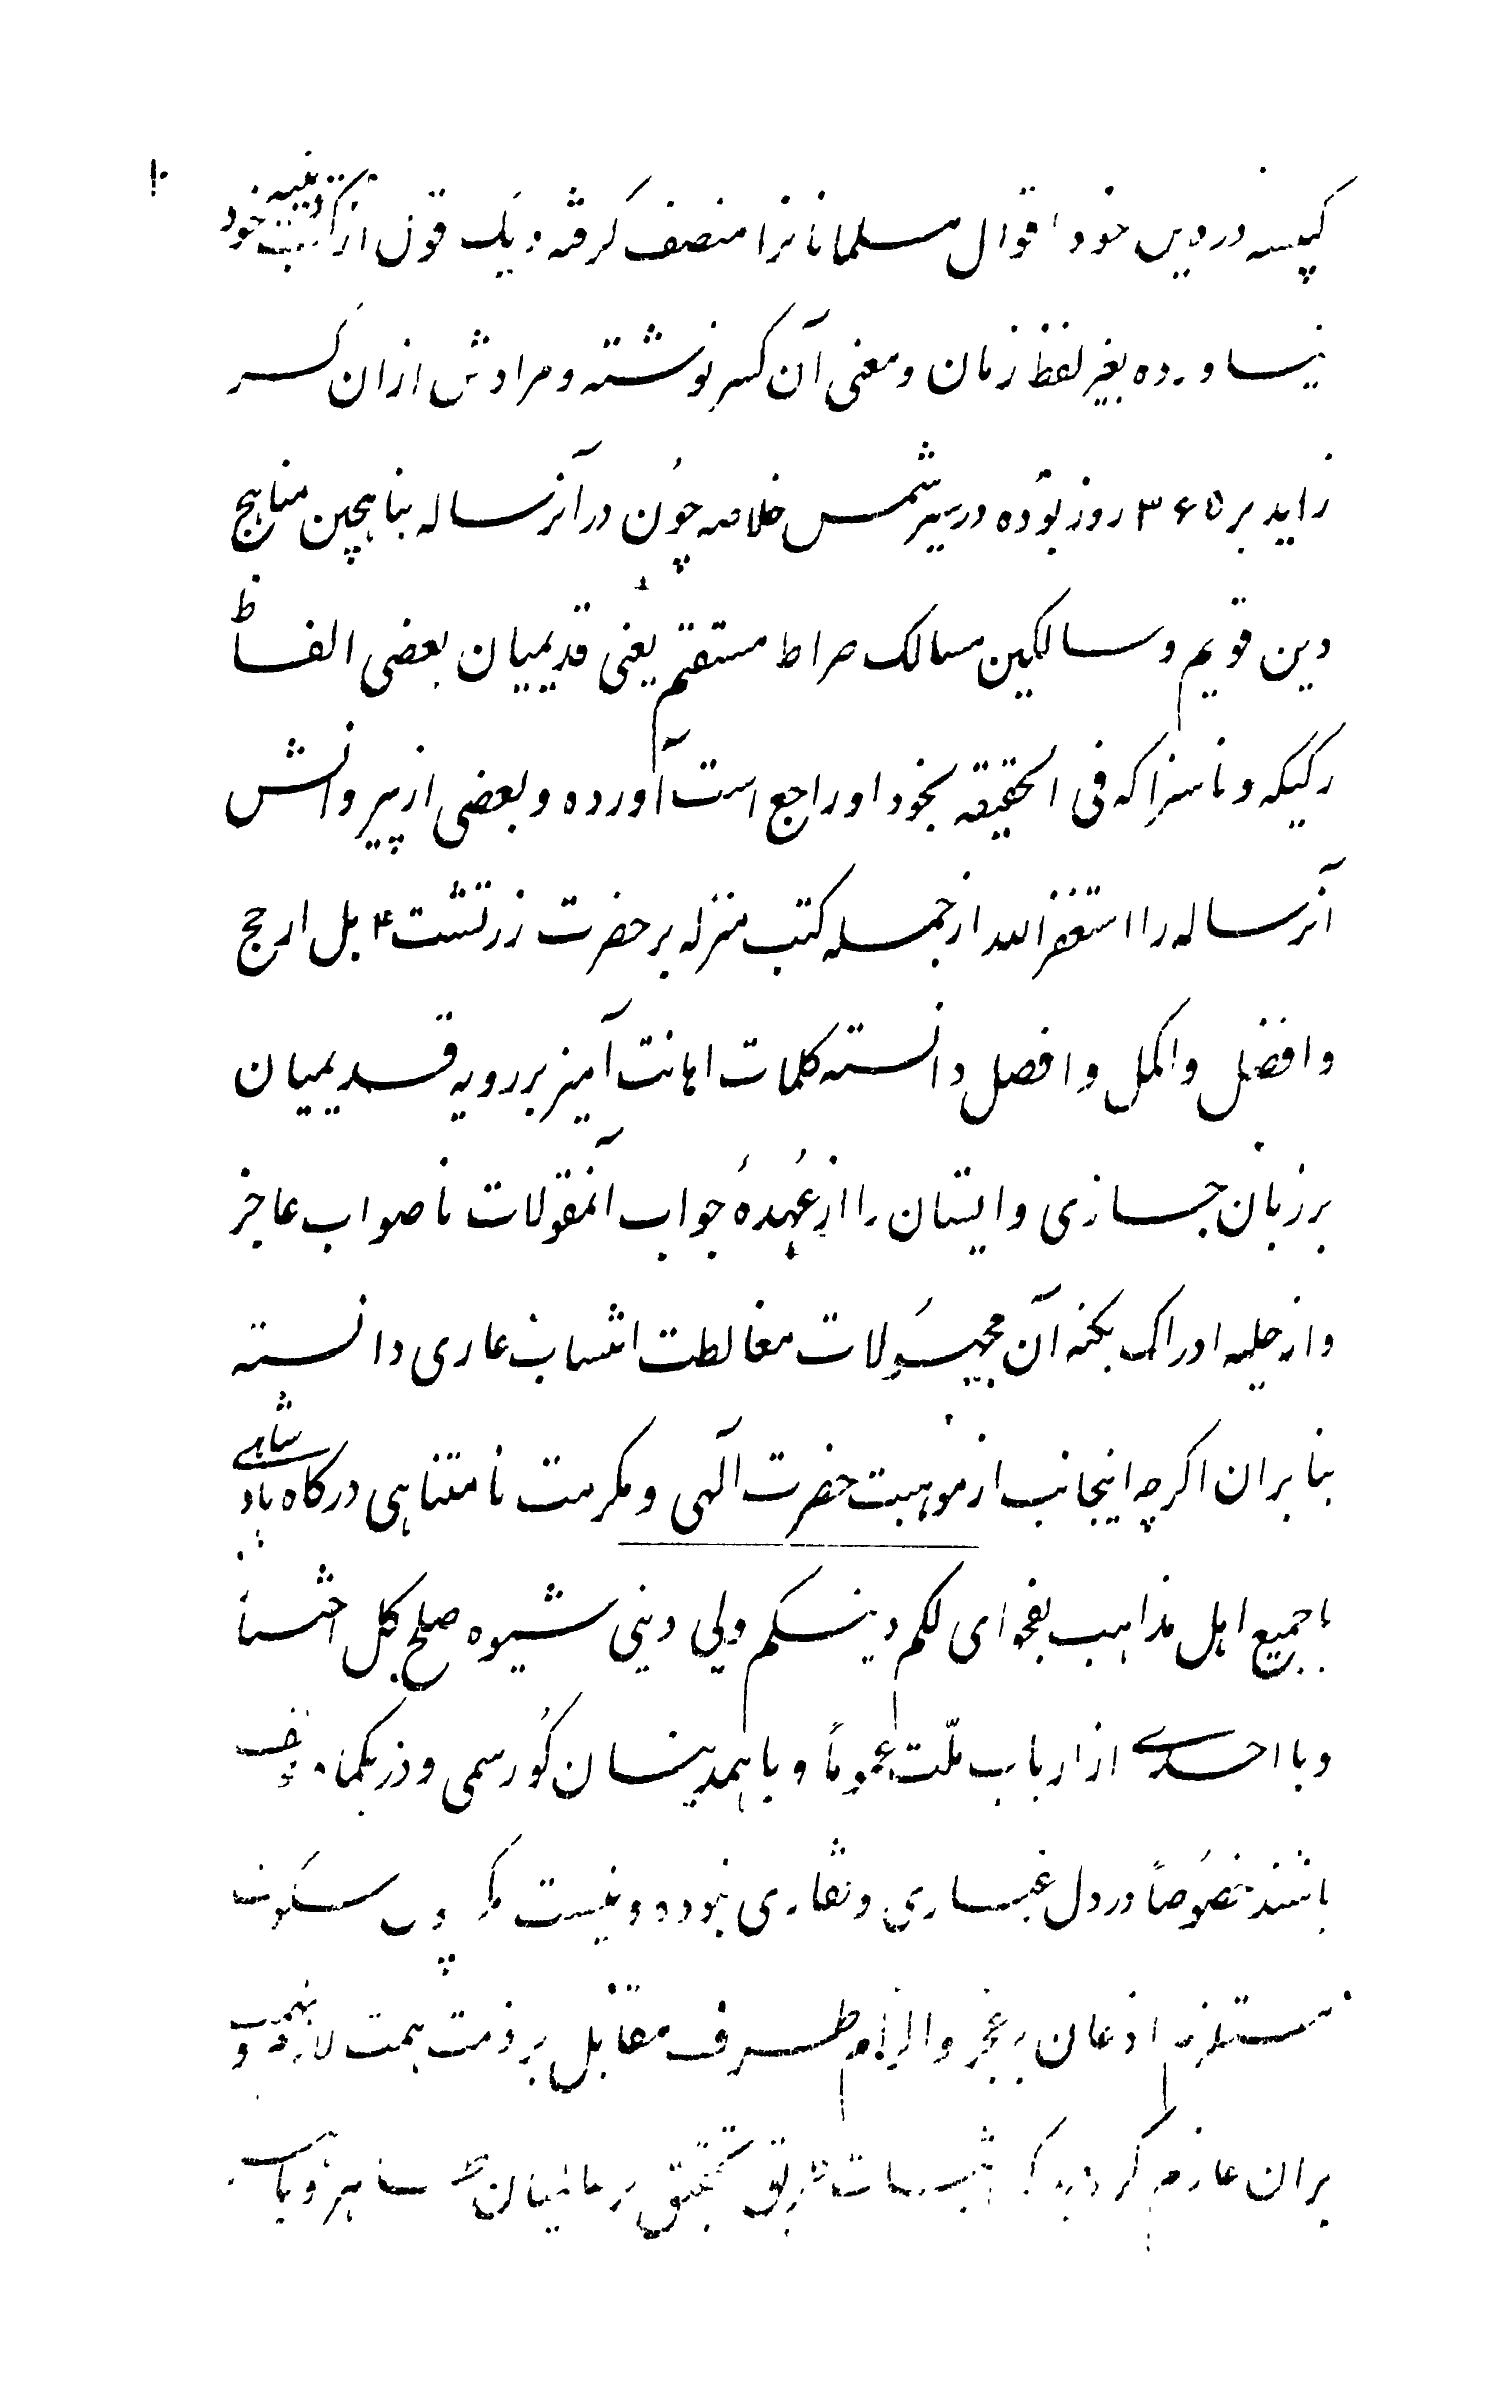 ۱۰
کبیسه در دین خود اقوال مسلمانانرا منصف گرفته و یک قول از کتب دینیه خود
نیاورده بغیر لفظ زمان و معنی آن کسر نوشته و مرادش ازان کسر
زاید بر ۳۶۵ روز بوده در سیر شمس خلاصه چون در آنرساله بناهجین مناهج
دین قویم و سالکین مسالک صراط مستقیم یعنی قدیمیان بعضی الفاظ
رکیکه و ناسزا که فی الحقیقه بخود او راجع است آورده و بعضی از پیروانش
آنرساله را استغفرالله از جمله کتب منزله بر حضرت زرتشت ۴ بل ارجح
و افضل و اکمل و افصل دانسته کلمات اهانت آمیز بر رویه قدیمیان
بر زبان جسازی و ایشان را از عُهدهٔ جواب آنمقولات ناصواب عاجز
و از حلیه ادراک بکنه آن مجهولات مغالطت انتساب عاری دانسته
بنا بران اکرچه اینجانب از موهبت حضرت آلهی و مکرمت نامتناهی درکاه پادشاهی
با جمیع اهل مذاهب بفحوای لکم دینکم ولی دینی شیوه صلح کل اختیار
و با احدی از ارباب ملّت عموماً و با همدینان کو رسمی و در یکماه
باشند خصُوصاً در دل غباری و نقاری نبوده و نیست مکر چون سکوت
مستلزم اذعان بر عجز و الزام طرف مقابل بر ذمت همت لازم و
بران عازم کردید که شبهات